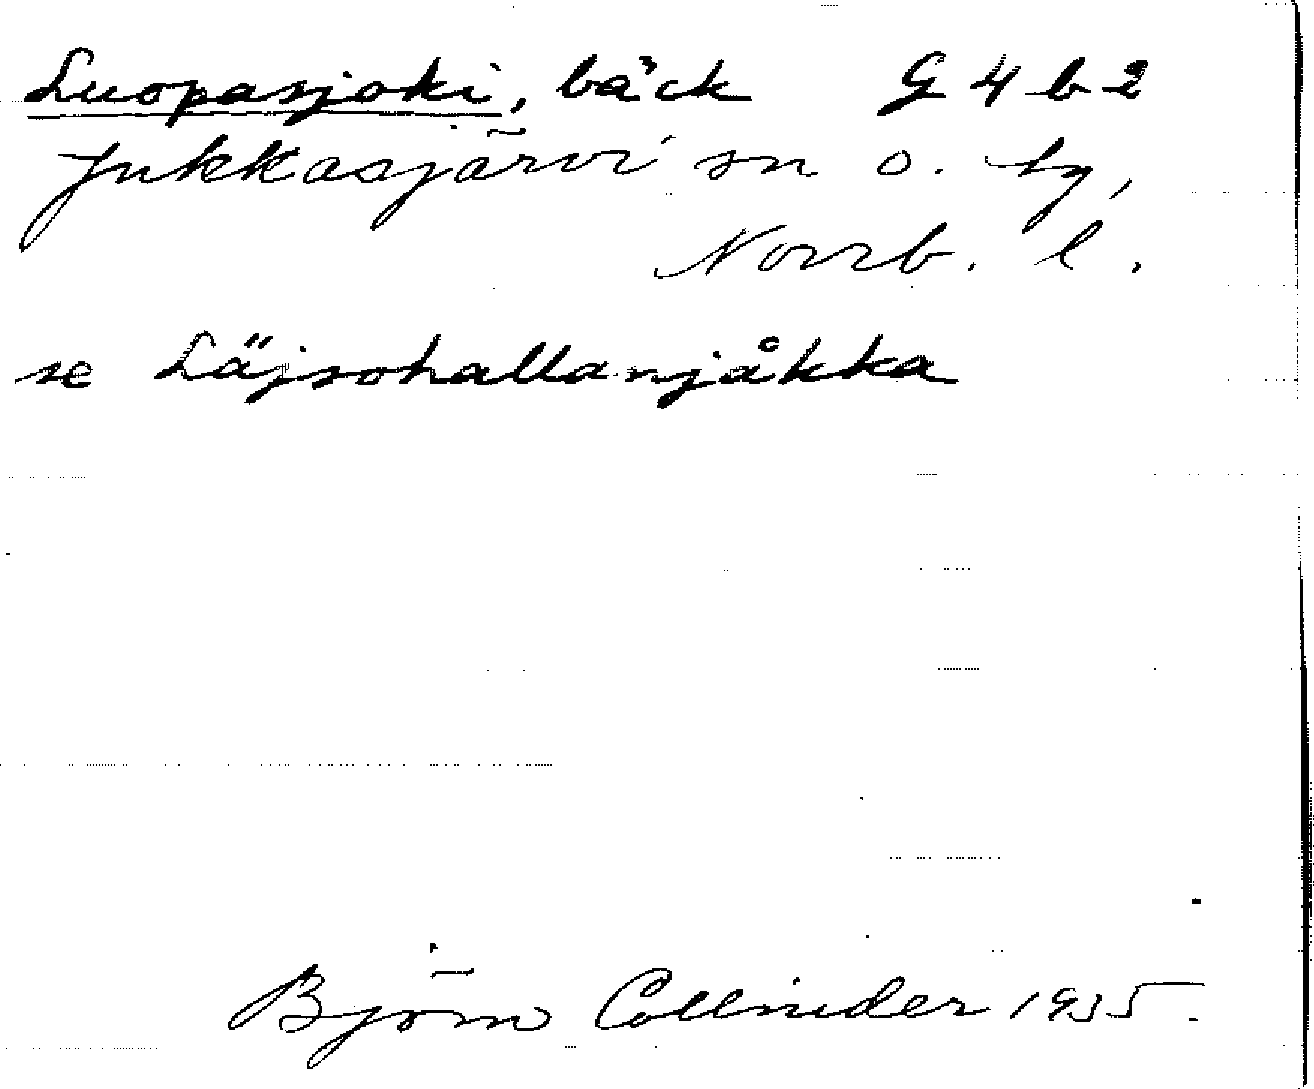 Luopasjoki, bäck G 4 b 2
Jukkasjärvi sn o. tg,
Norrb. l.
se Läjsohallanjåkka
Björn Collinder 1935.